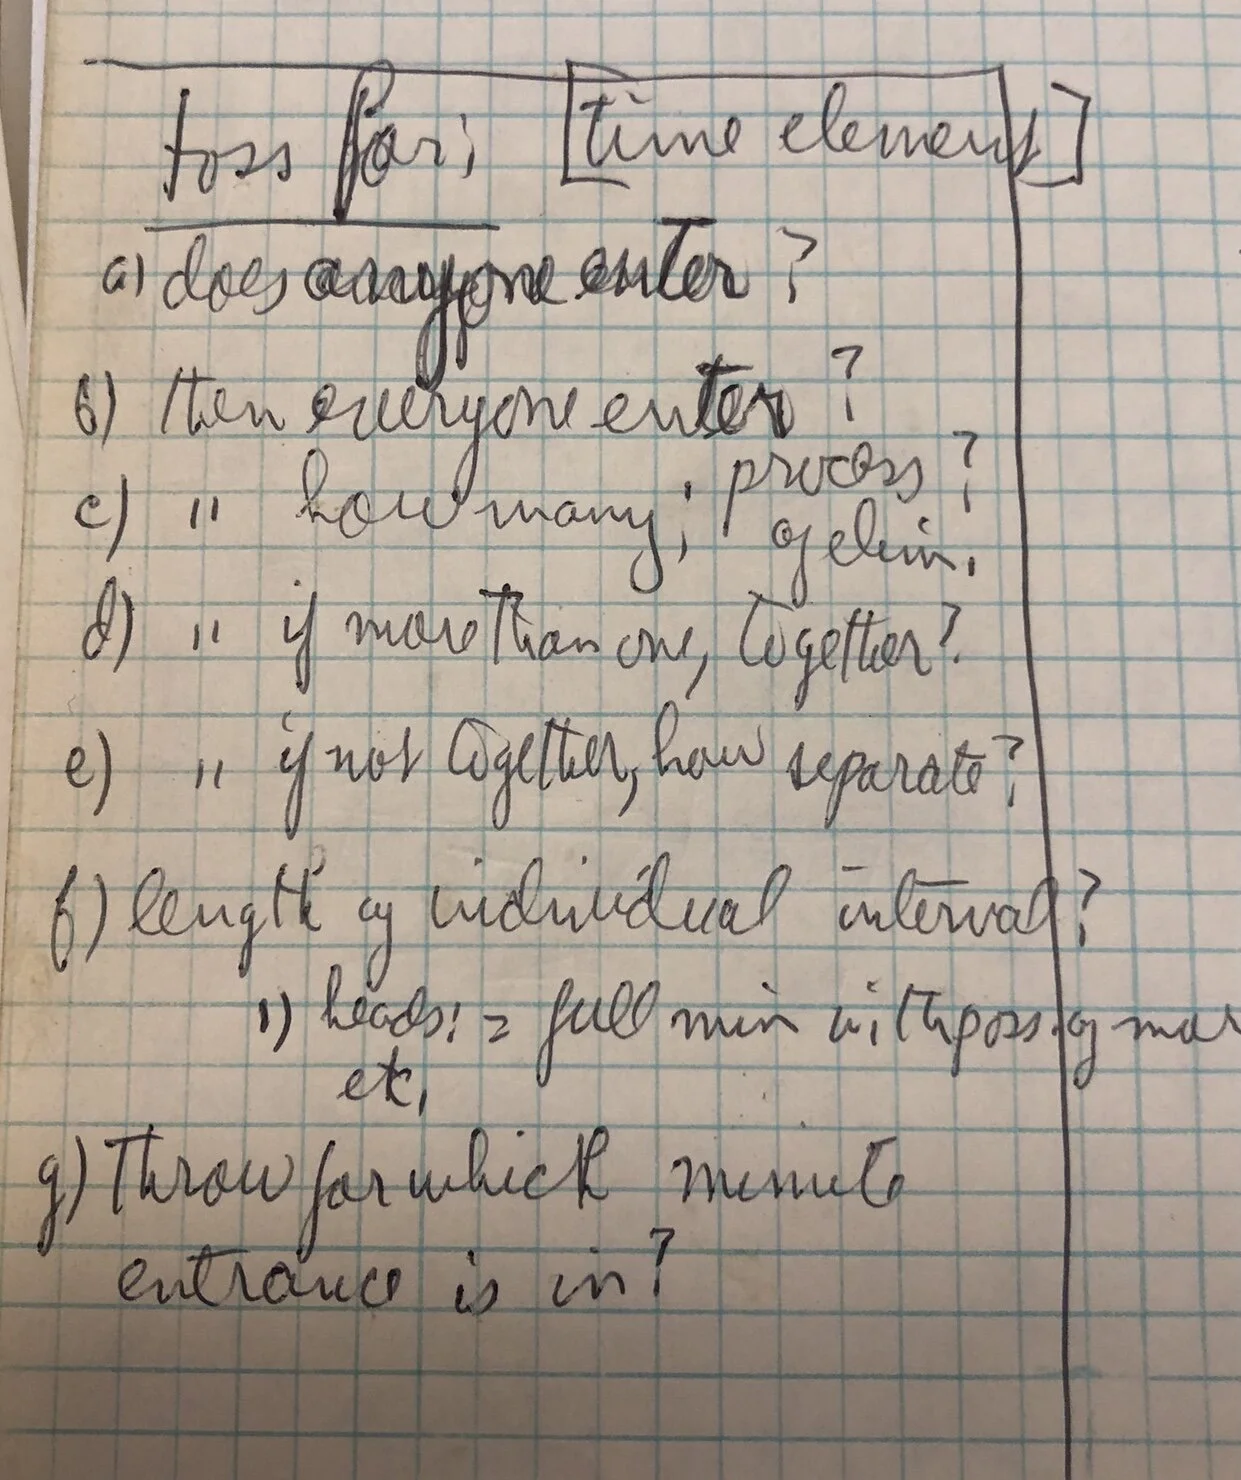 toss for; [time element]
a) does anyone enter?
b) then everyone enter?
c) " how many; process?
of elim.
d) " if more than one, together?
e) " if not together, how separate?
f) length of individual interval?
1) heads: = full min with poss. of mor
etc.
g) Throw for which minute
entrance is in?